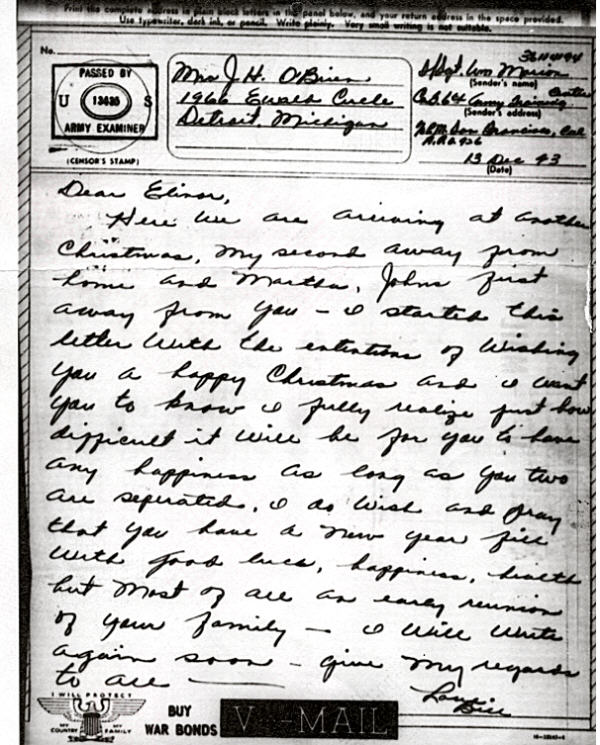 Print the complete address in plain block letters in the panel below, and your return address in the space provided.
Use typewriter, dark ink, or pencil. Write plainly. Very small writing is not suitable.
No.
PASSED BY
U 13435 S
ARMY EXAMINER
(CENSOR'S STAMP)
Mrs J. H. O'Brien
1966 Ewald Circle
Detroit, Michigan
S/Sgt. Wm
(Sender's name)
Co. B. 64 Training
(Sender's address)
San Francisco, Cal
13 Dec 43
(Date)
Dear Elinor,
Here we are arriving at another
Christmas, my second away from
home and Martha, Johns first
away from you – I started this
letter with the ententions of wishing
you a happy Christmas and I want
you to know I fully realize just how
difficult it will be for you to have
any happiness as long as you two
are seperated, I do wish and pray
that you have a new year fill
with good luck, happiness, health
but most of all an early reunion
of your family – I will write
again soon – give my regards
to all
Love
Bill
I WILL PROTECT
MY COUNTRY MY FAMILY
BUY
WAR BONDS
V - MAIL